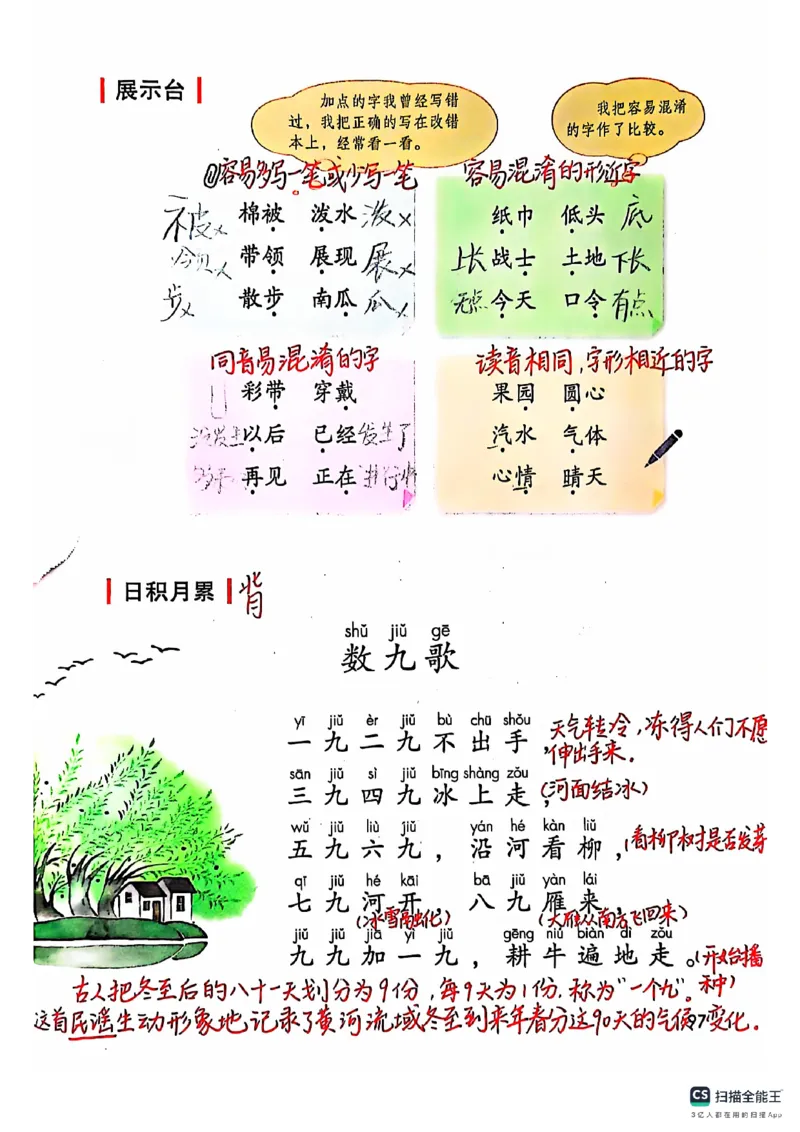 展示台
加点的字我曾经写错
过，我把正确的写在改错
本上，经常看一看。
我把容易混淆
的字作了比较。
①容易多写一笔或少写一笔
容易混淆的形近字
棉被 泼水
纸巾 低头 底
带领 展现 展×
上长 战士 土地 下长
步× 散步 南瓜 瓜×
无点 今天 口令 有点
同音易混淆的字
读音相同,字形相近的字
彩带 穿戴
果园 圆心
没发生 以后 已经 发生了
汽水 气体
再见 正在
心情 晴天
日积月累 背
shǔ jiǔ gē
数九歌
yī jiǔ èr jiǔ bù chū shǒu
一九二九不出手，
天气转冷,冻得人们不愿
伸出手来.
sān jiǔ sì jiǔ bīng shàng zǒu
三九四九冰上走；(河面结冰)
wǔ jiǔ liù jiǔ yán hé kàn liǔ
五九六九，沿河看柳，(看柳树是否发芽
qī jiǔ hé kāi bā jiǔ yàn lái
七九河开，八九雁来，
(冰雪融化) (大雁从南方飞回来)
jiǔ jiǔ jiā yī jiǔ gēng niú biàn dì zǒu
九九加一九，耕牛遍地走。(开始播
种)
古人把冬至后的八十一天划分为9份,每9天为1份.称为"一个九"。
这首民谣生动形象地记录了黄河流域冬至到来年春分这90天的气候变化.
CS 扫描全能王
3亿人都在用的扫描App